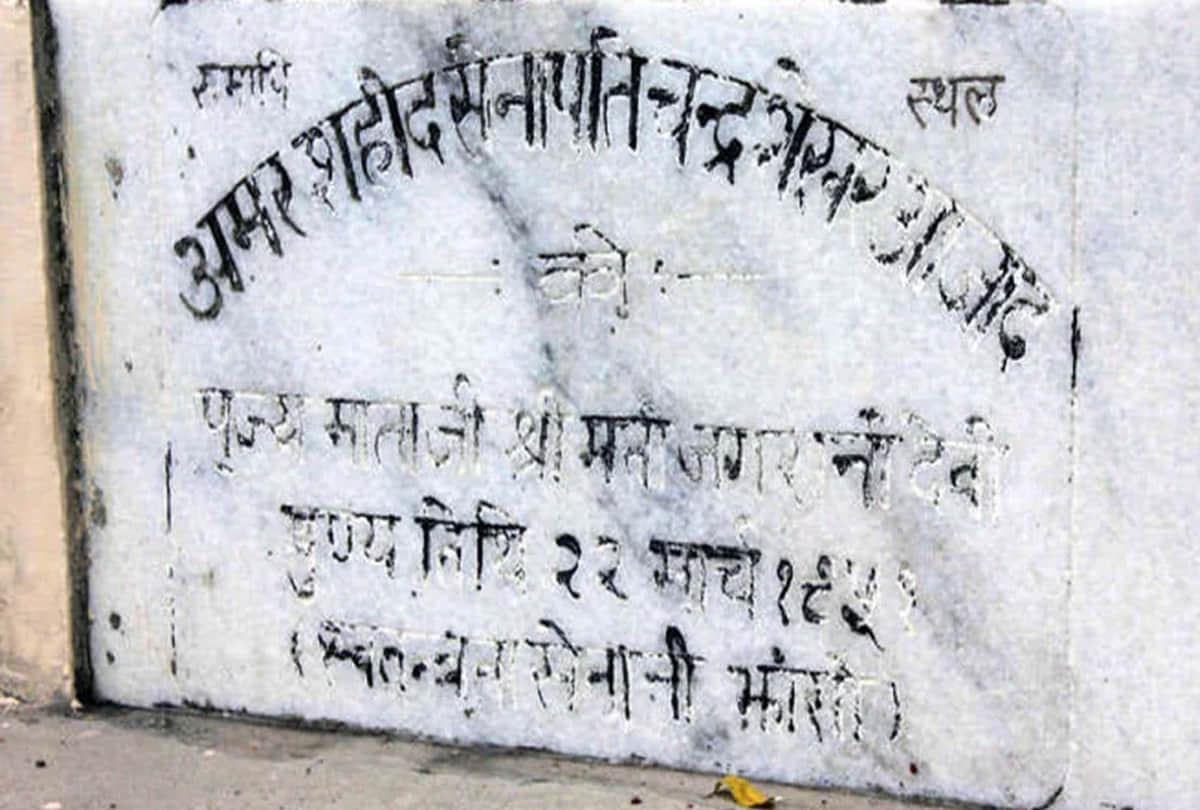 समाधि स्थल
अमर शहीद सेनापति चन्द्रशेखर आजाद
की
पूज्य माताजी श्रीमती जगरानी देवी
पुण्य तिथि २२ मार्च १९५१
(स्वतन्त्रता सेनानी झांसी)